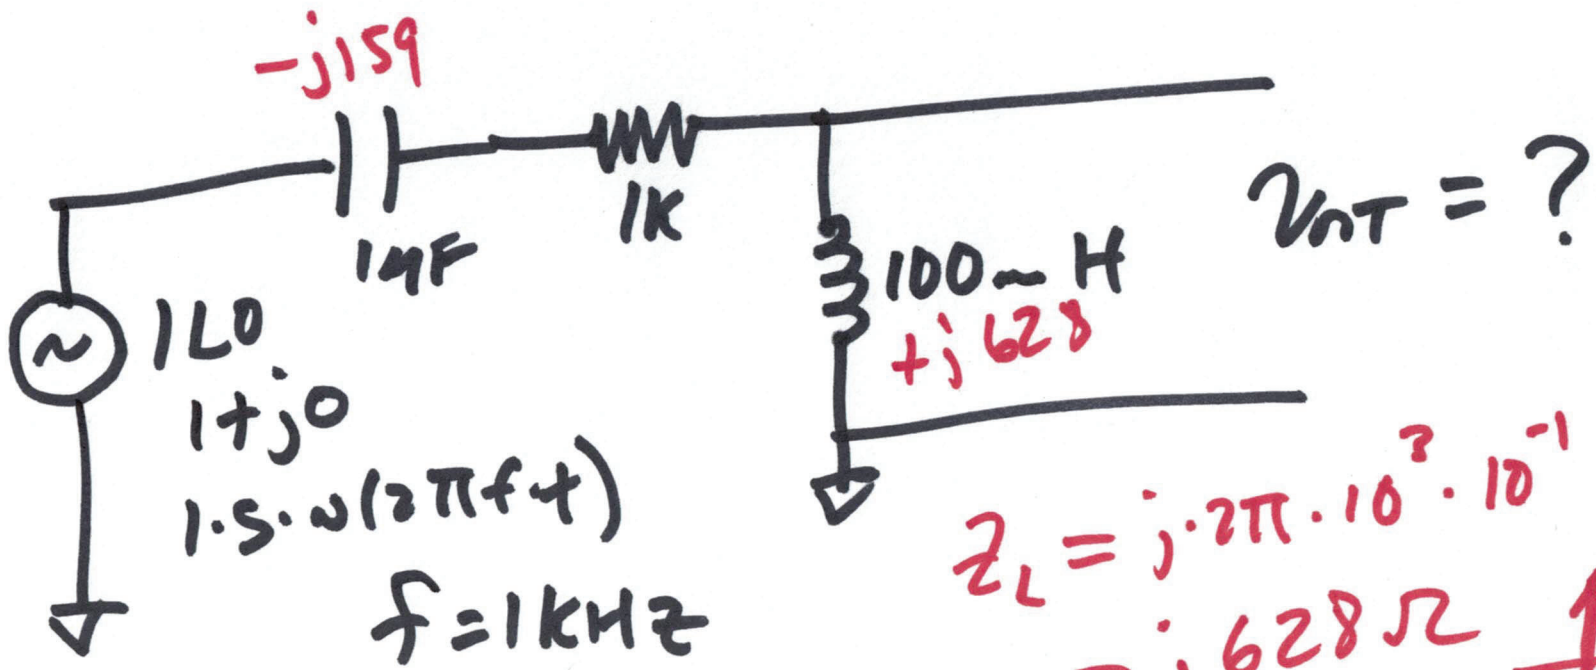 -j159
1μF
1K
100mH
+j628
V_OUT = ?
~
1∠0
1+j0
1·sin(2πft)
f=1KHz
Z_L = j·2π·10³·10⁻¹
j628Ω